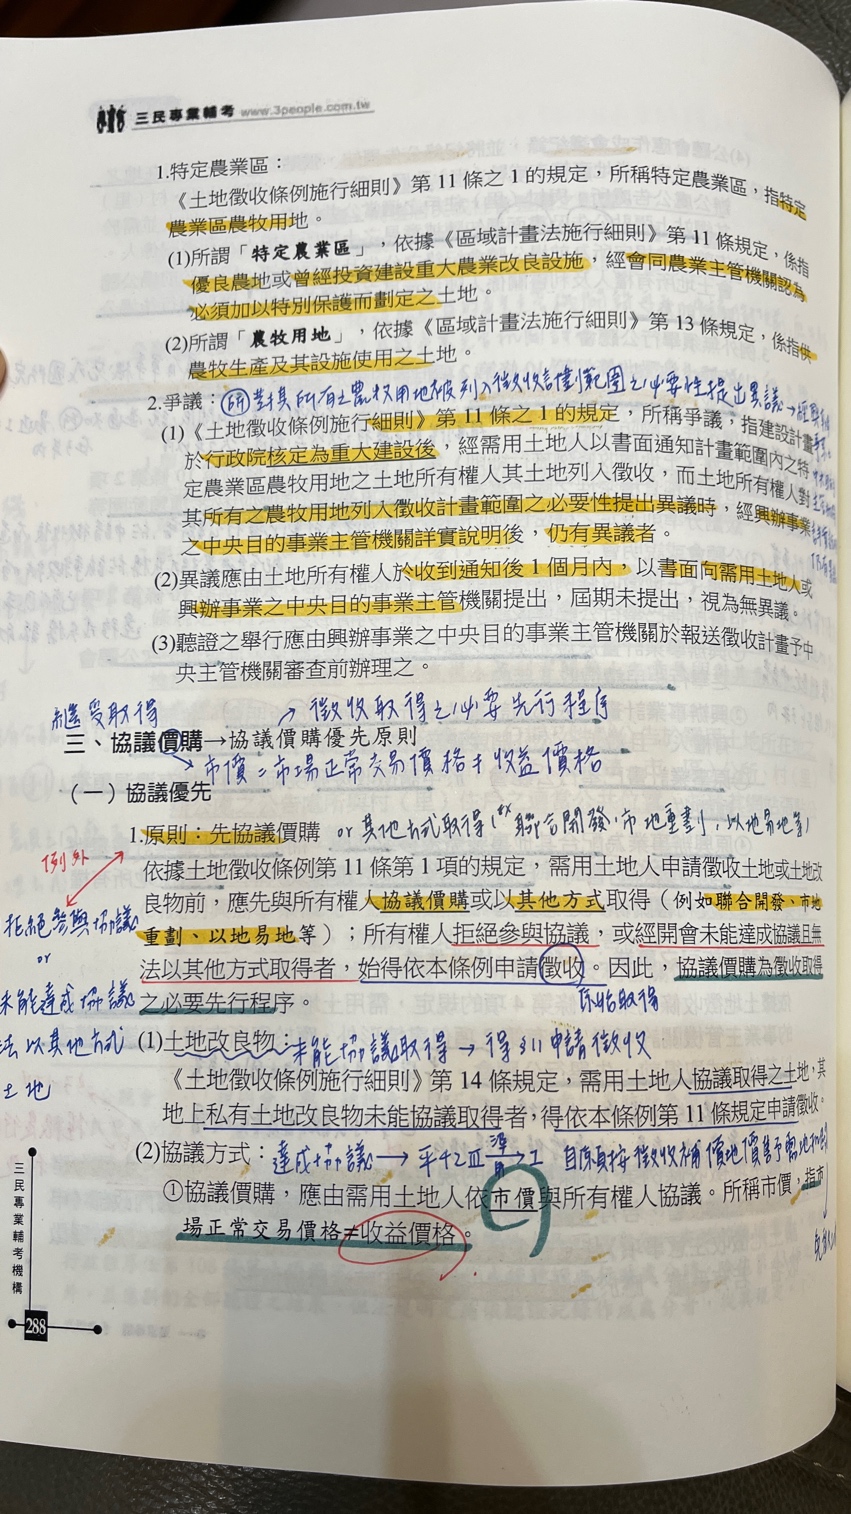 三民專業輔考 www.3people.com.tw
1.特定農業區：
《土地徵收條例施行細則》第 11 條之 1 的規定，所稱特定農業區，指特定
農業區農牧用地。
(1)所謂「特定農業區」，依據《區域計畫法施行細則》第 11 條規定，係指
優良農地或曾經投資建設重大農業改良設施，經會同農業主管機關認為
必須加以特別保護而劃定之土地。
(2)所謂「農牧用地」，依據《區域計畫法施行細則》第 13 條規定，係指供
農牧生產及其設施使用之土地。
2.爭議：對其所有之農牧用地被列入徵收計劃範圍之必要性提出異議→
(1)《土地徵收條例施行細則》第 11 條之 1 的規定，所稱爭議，指建設計畫
於行政院核定為重大建設後，經需用土地人以書面通知計畫範圍內之特
定農業區農牧用地之土地所有權人其土地列入徵收，而土地所有權人對
其所有之農牧用地列入徵收計畫範圍之必要性提出異議時，經興辦事業
之中央目的事業主管機關詳實說明後，仍有異議者。
(2)異議應由土地所有權人於收到通知後 1 個月內，以書面向需用土地人或
興辦事業之中央目的事業主管機關提出，屆期未提出，視為無異議。
(3)聽證之舉行應由興辦事業之中央目的事業主管機關於報送徵收計畫予中
央主管機關審查前辦理之。
繼受取得
徵收取得之必要先行程序
三、協議價購→協議價購優先原則
市價：市場正常交易價格≠收益價格
（一）協議優先
1.原則：先協議價購 or 其他方式取得(ex 聯合開發、市地重劃、以地易地等)
例外
依據土地徵收條例第 11 條第 1 項的規定，需用土地人申請徵收土地或土地改
良物前，應先與所有權人協議價購或以其他方式取得（例如聯合開發、市地
拒絕參與協議
重劃、以地易地等）；所有權人拒絕參與協議，或經開會未能達成協議且無
or
法以其他方式取得者，始得依本條例申請徵收。因此，協議價購為徵收取得
未能達成協議
之必要先行程序。
原始取得
法以其他方式
(1)土地改良物：未能協議取得→得§11申請徵收
土地
《土地徵收條例施行細則》第 14 條規定，需用土地人協議取得之土地，其
地上私有土地改良物未能協議取得者，得依本條例第 11 條規定申請徵收。
(2)協議方式：達成協議→
①協議價購，應由需用土地人依市價與所有權人協議。所稱市價，指市
場正常交易價格≠收益價格。
三民專業輔考機構
288